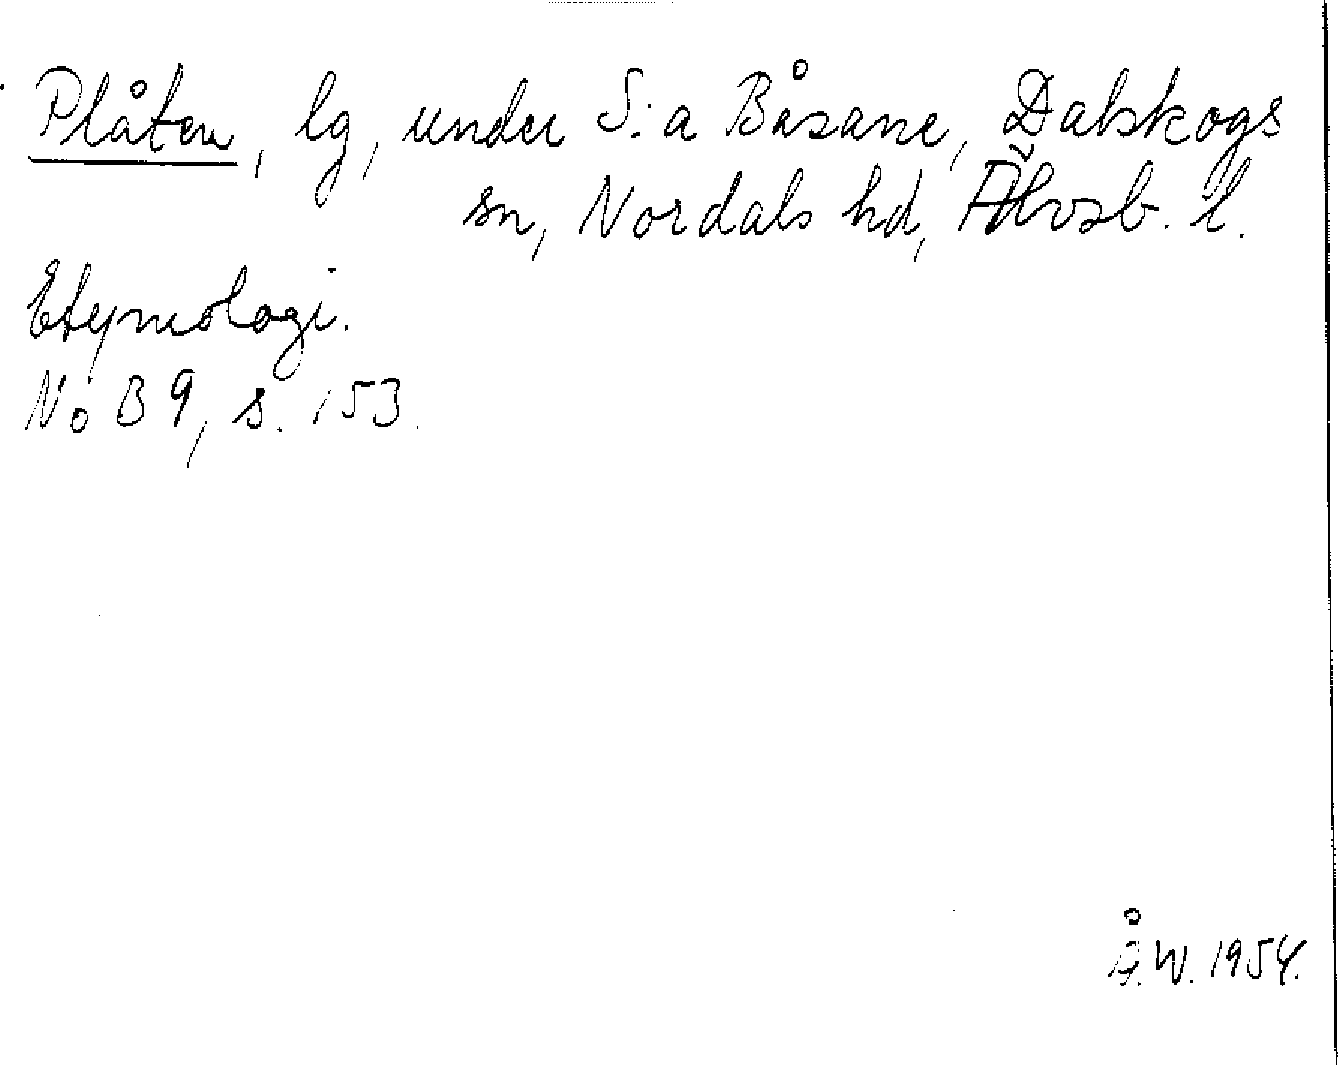 Plåten, lg, under S:a Båsane, Dalskogs
sn, Nordals hd, Älvsb. l.
Etymologi.
NoB 9, s. 153.
Å.W. 1954.